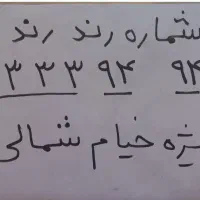 شماره رند رند
۹۴ ۹۴ ۳۳۳
خیام شمالی